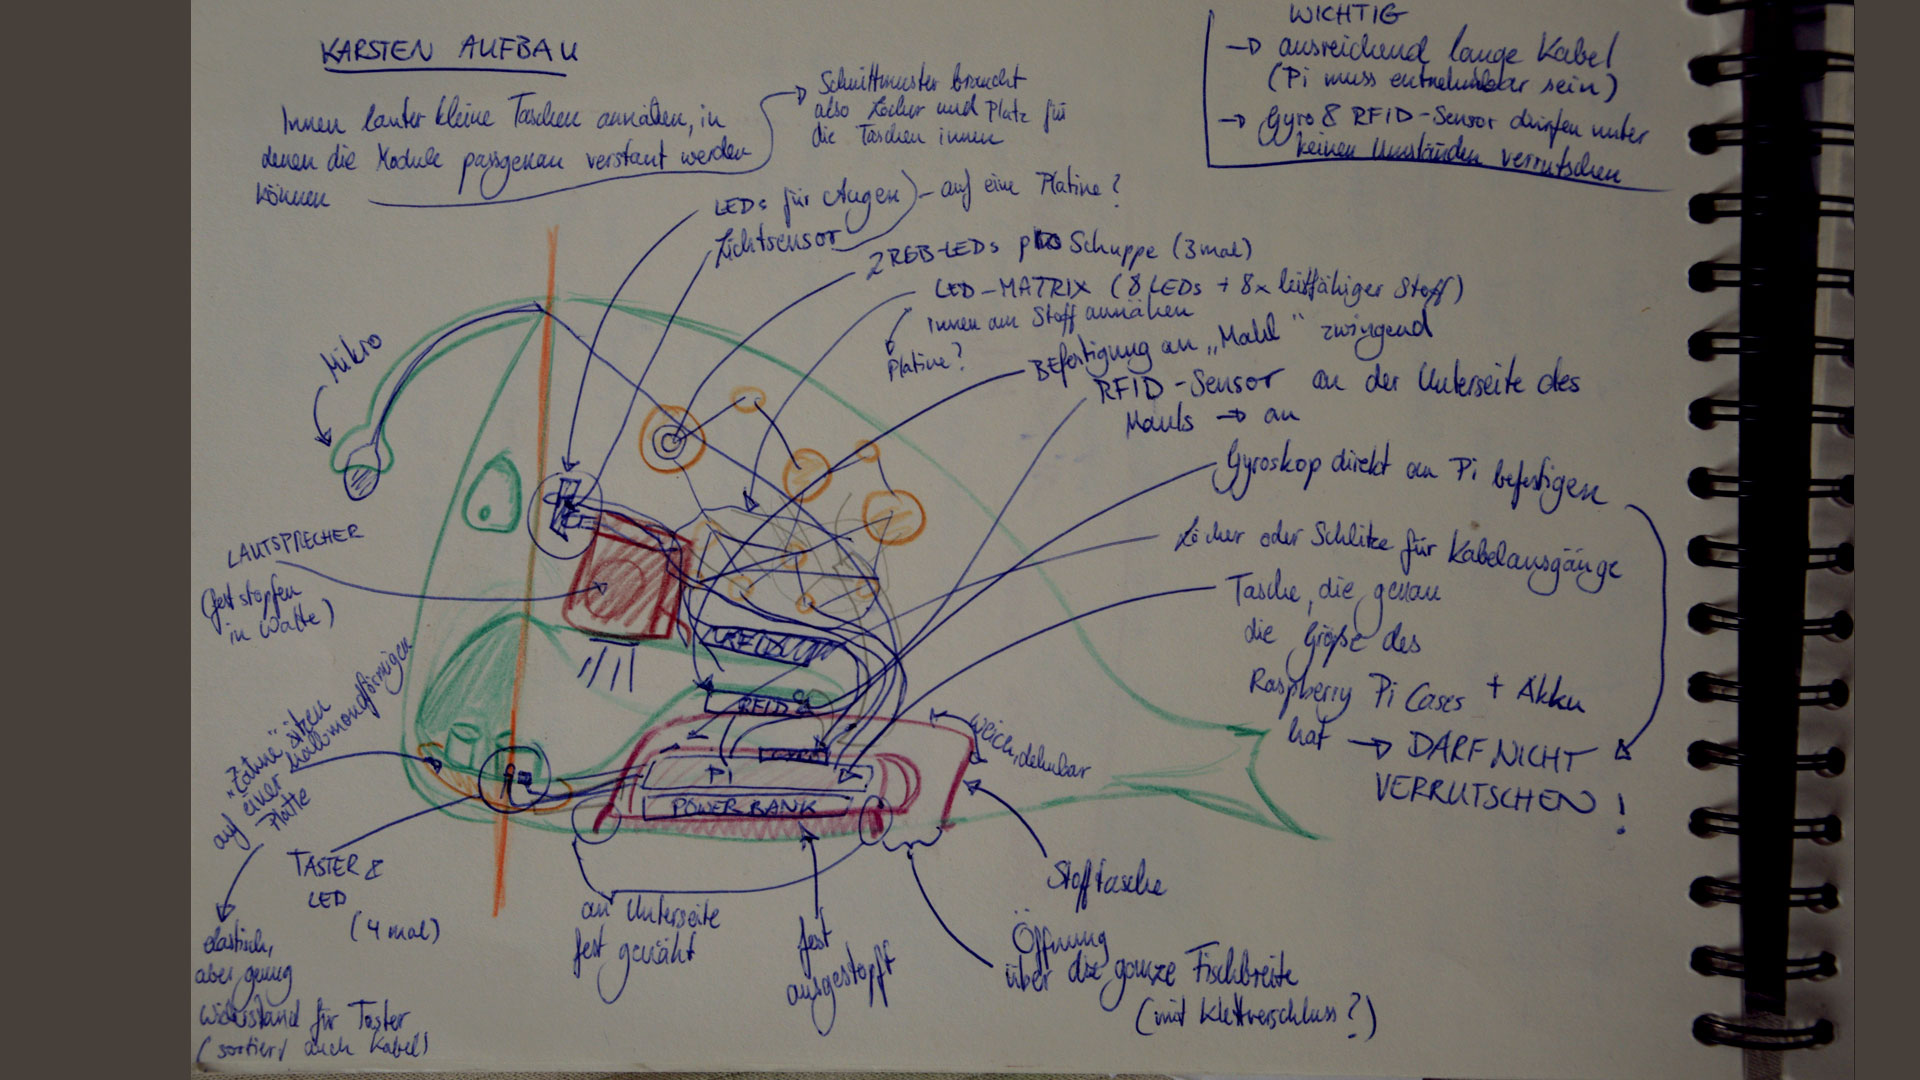 KARSTEN AUFBAU
Innen lauter kleine Taschen annähen, in
denen die Module passgenau verstaut werden
können
Schnittmuster braucht
also Löcher und Platz für
die Taschen innen
WICHTIG
→ ausreichend lange Kabel
(Pi muss entnehmbar sein)
→ Gyro & RFID-Sensor dürfen unter
keinen Umständen verrutschen
LEDs für Augen) - auf eine Platine?
Lichtsensor
2 RGB-LEDs pro Schuppe (3 mal)
LED-MATRIX (8 LEDs + 8x leitfähiger Stoff)
innen am Stoff annähen
Platine?
Befestigung an „Mahl" zwingend
RFID-Sensor an der Unterseite des
Mauls → an
Gyroskop direkt an Pi befestigen
Löcher oder Schlitze für Kabelausgänge
Tasche, die genau
die Größe des
Raspberry Pi Cases + Akku
hat → DARF NICHT
VERRUTSCHEN!
Mikro
LAUTSPRECHER
(fest stopfen
in Watte)
„Zähne" sitzen
auf einer halbmondförmigen
Platte
elastisch,
aber genug
Widerstand für Taster
(sortiert auch Kabel)
TASTER &
LED
(4 mal)
RFID
RFID 2
GYRO
PI
POWERBANK
weich, dehnbar
an Unterseite
fest genäht
fest
ausgestopft
Stofftasche
Öffnung
über die ganze Fischbreite
(mit Klettverschluss?)